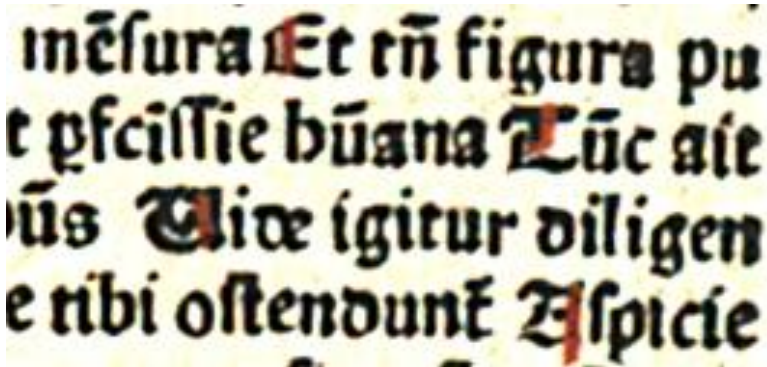 mēſura Et tn̄ figura pu
t ꝑfcīſſie hūana Tūc aīe
ūs Vide igitur diligen
e tibi oſtendunt̄ Aſpicie